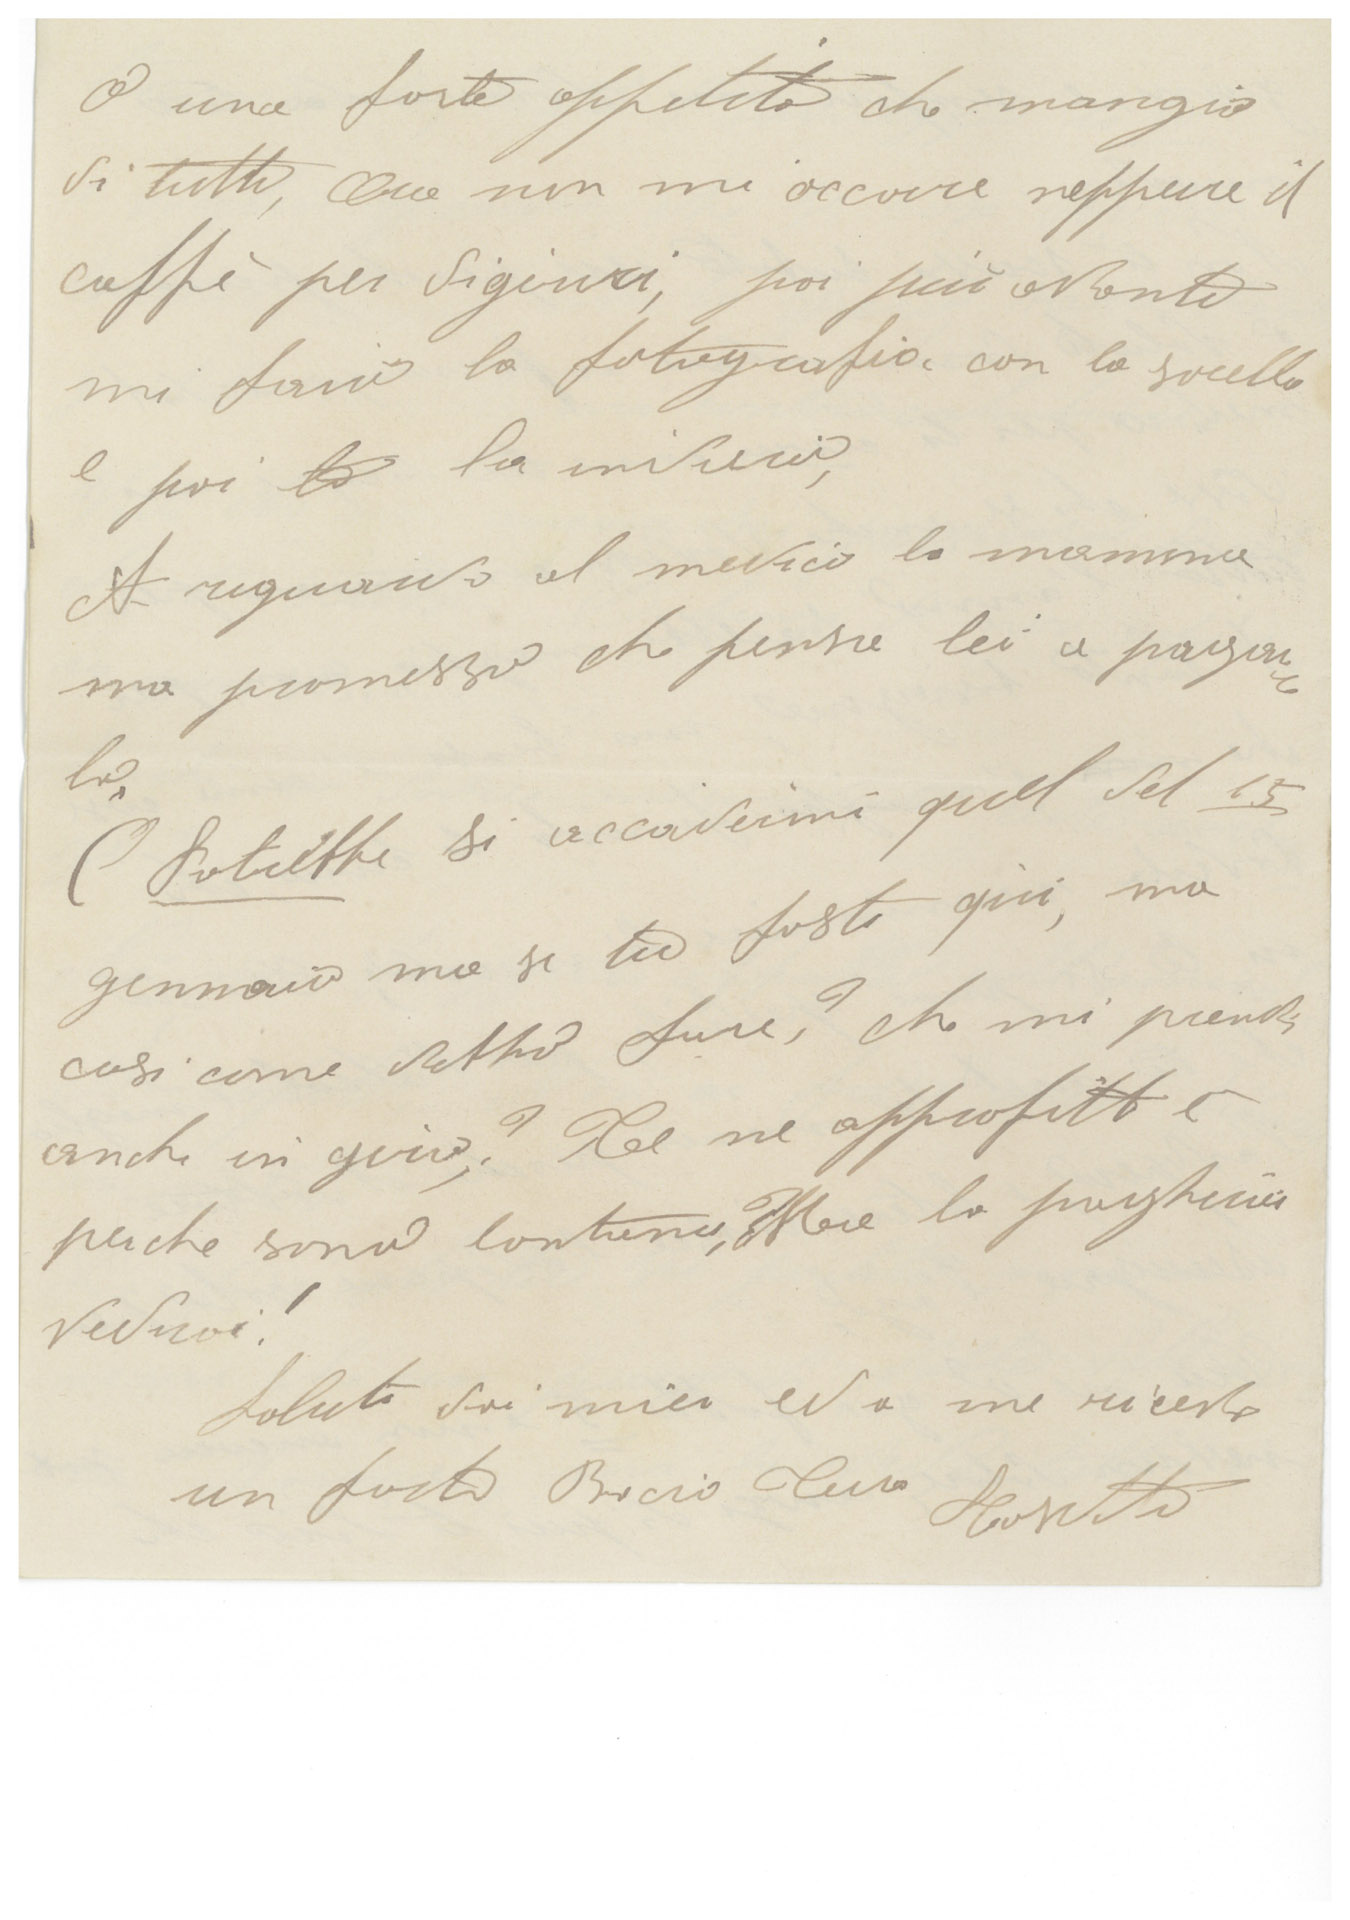 O una forte appetito che mangio
di tutto, Ora non mi occorre neppure il
caffè per digiuri, poi più avanti
mi farò la fotografia con la sorella
e poi te la invierò,
A reguardo al medico la mamma
ma promesso che pensa lei a pagar
lo.
(Potrebbe si accadermi quel del 15
gennaio ma se tu fosti qui, ma
cosi come debbo fare,? che mi prendi
anche in giro,? Te ne approfitti è
perche sono lontano,? Me la pagherai
vedrai!
Saluti dai miei ed a me ricevi
un forte Bacio Tua